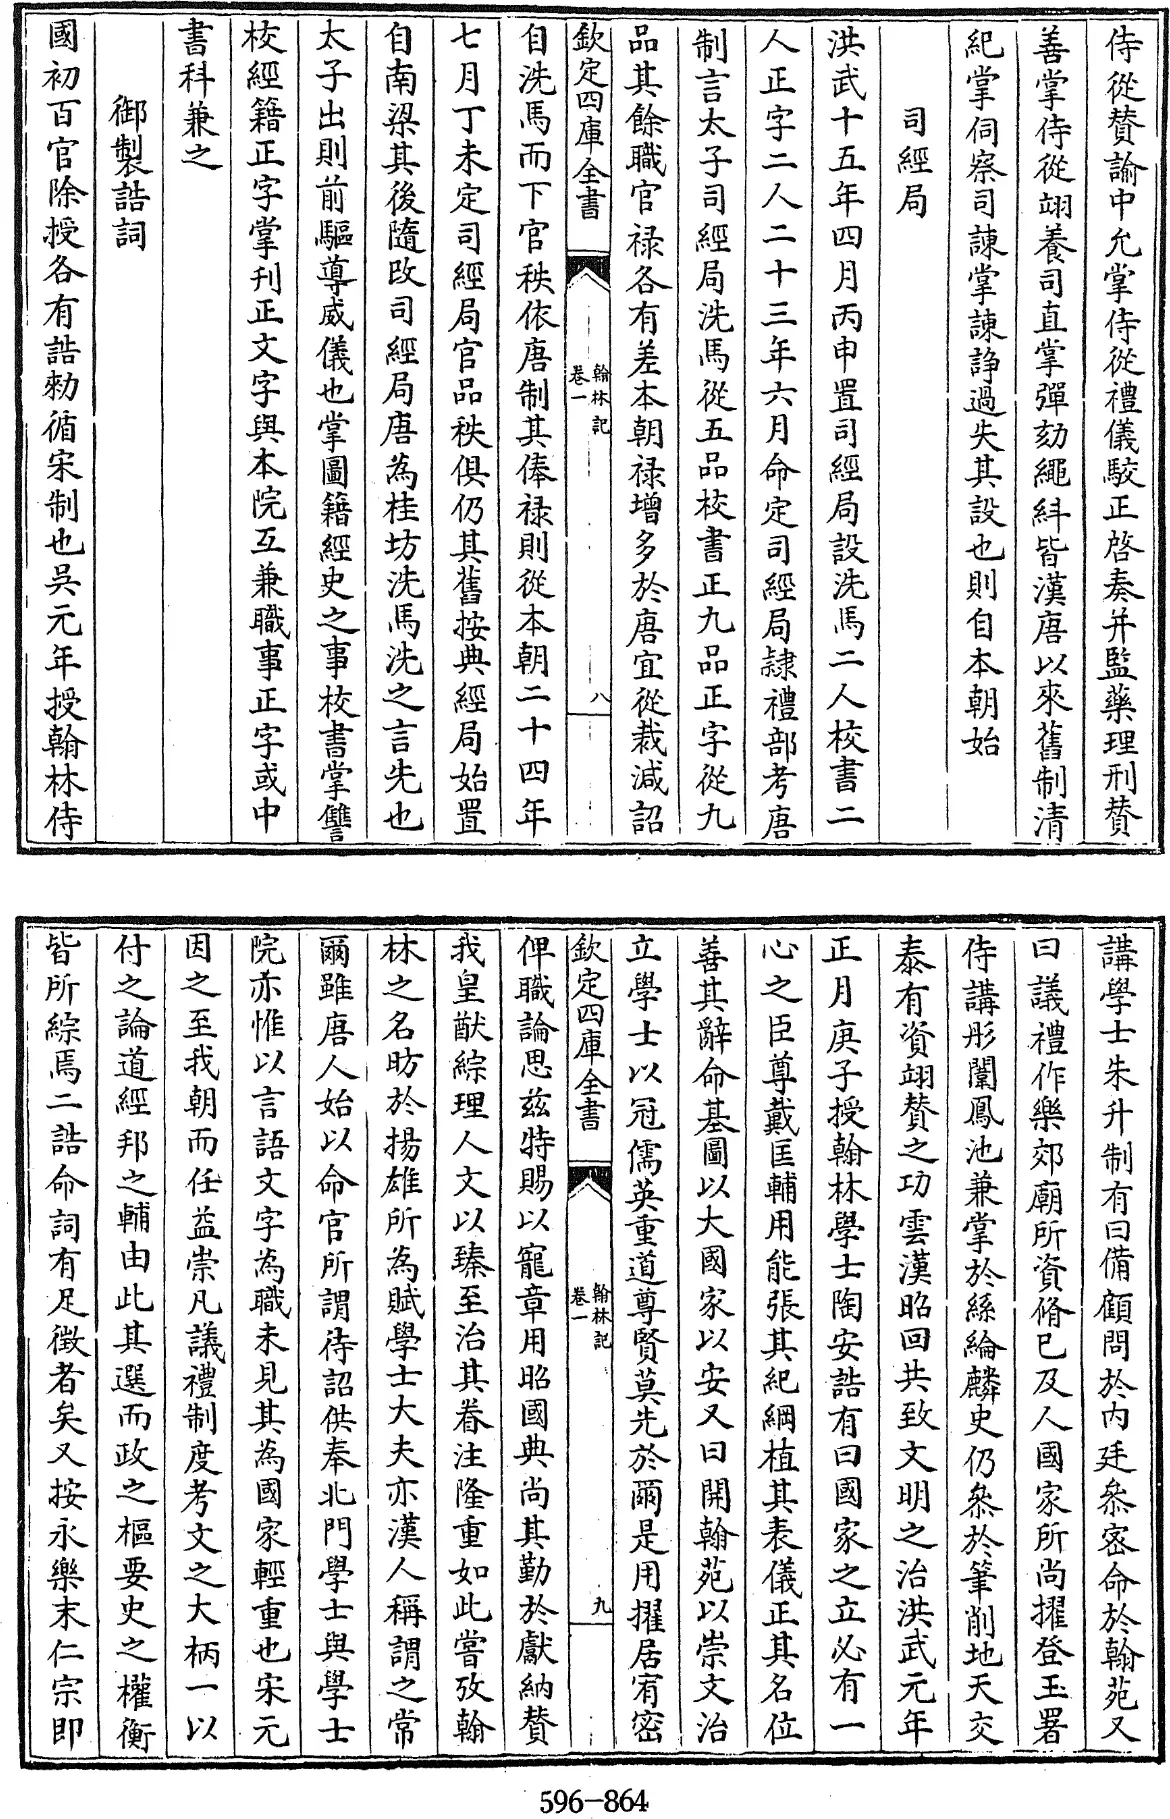 侍從賛諭中允掌侍從禮儀駮正啓奏并監藥理刑賛
善掌侍從翊養司直掌彈劾繩糾皆漢唐以來舊制清
紀掌伺察司諌掌諌諍過失其設也則自本朝始
司經局
洪武十五年四月丙申置司經局設洗馬二人校書二
人正字二人二十三年六月命定司經局隷禮部考唐
制言太子司經局洗馬從五品校書正九品正字從九
品其餘職官禄各有差本朝禄增多於唐宜從裁減詔
欽定四庫全書
翰林記
卷一
八
自洗馬而下官秩依唐制其俸禄則從本朝二十四年
七月丁未定司經局官品秩俱仍其舊按典經局始置
自南梁其後隨改司經局唐為桂坊洗馬洗之言先也
太子出則前驅導威儀也掌圖籍經史之事校書掌讐
校經籍正字掌刋正文字與本院互兼職事正字或中
書科兼之
御製誥詞
國初百官除授各有誥勅循宋制也吳元年授翰林侍
講學士朱升制有曰備顧問於内廷叅密命於翰苑又
曰議禮作樂郊廟所資脩已及人國家所尚擢登玉署
侍講彤闈鳳池兼掌於絲綸麟史仍叅於筆削地天交
泰有資翊賛之功雲漢昭回共致文明之治洪武元年
正月庚子授翰林學士陶安誥有曰國家之立必有一
心之臣尊戴匡輔用能張其紀綱植其表儀正其名位
善其辭命基圖以大國家以安又曰開翰苑以崇文治
立學士以冠儒英重道尊賢莫先於爾是用擢居宥密
欽定四庫全書
翰林記
卷一
九
俾職論思兹特賜以寵章用昭國典尚其勤於獻納賛
我皇猷綜理人文以臻至治其眷注隆重如此嘗攷翰
林之名昉於揚雄所為賦學士大夫亦漢人稱謂之常
爾雖唐人始以命官所謂待詔供奉北門學士與學士
院亦惟以言語文字為職未見其為國家輕重也宋元
因之至我朝而任益崇凡議禮制度考文之大柄一以
付之論道經邦之輔由此其選而政之樞要史之權衡
皆所綜焉二誥命詞有足徴者矣又按永樂末仁宗即
596-864